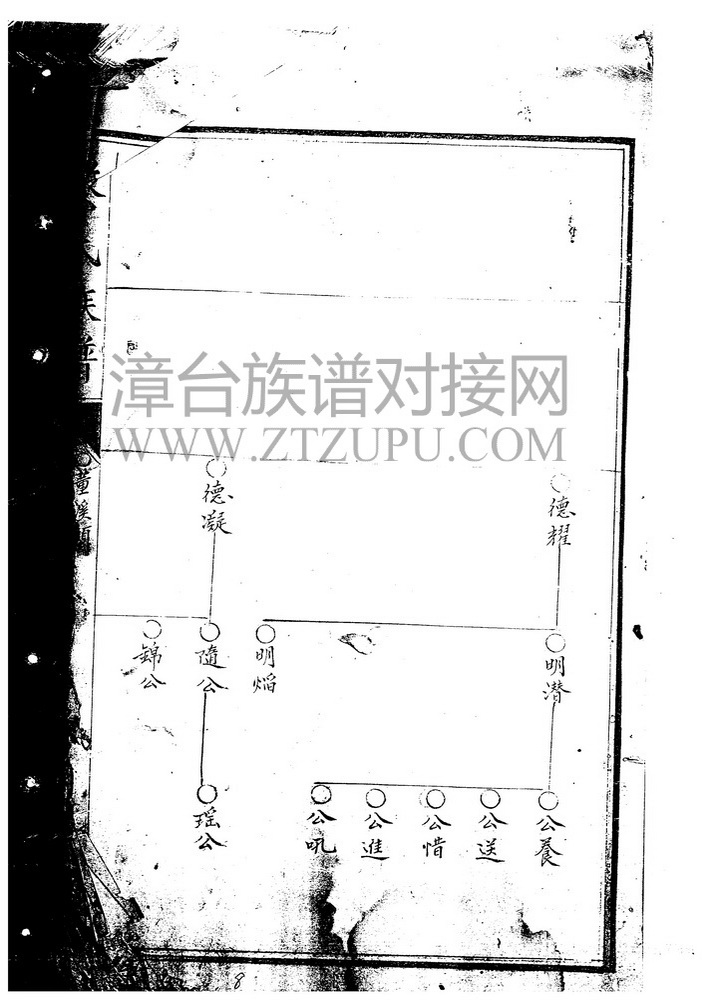 族譜
漳台族谱对接网
WWW.ZTZUPU.COM
德耀
德凝
明潛
明焰
隨公
錦公
公養
公送
公惜
公進
公吼
瑶公
8